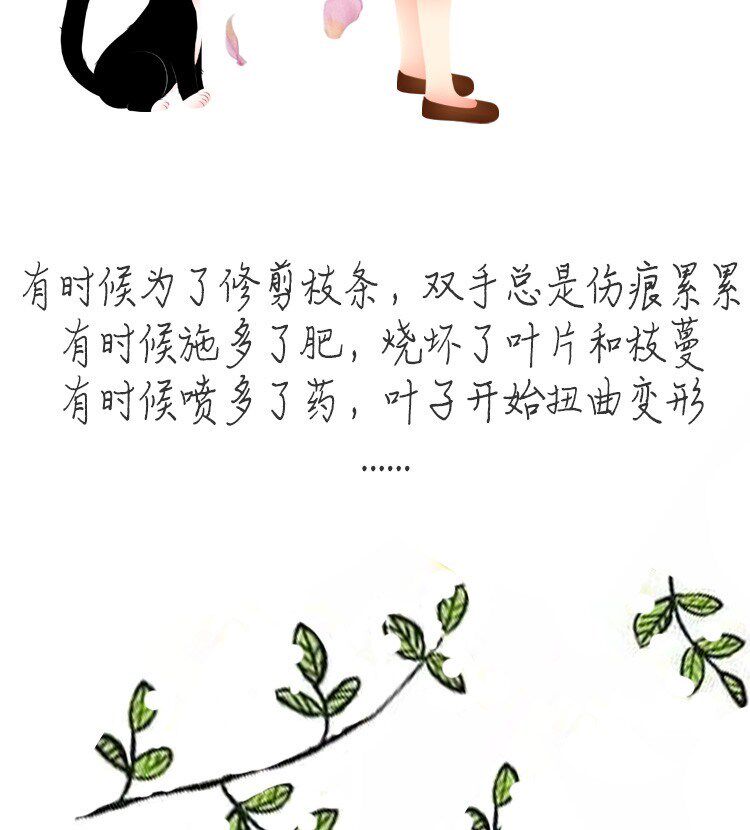 有时候为了修剪枝条，双手总是伤痕累累
有时候施多了肥，烧坏了叶片和枝蔓
有时候喷多了药，叶子开始扭曲变形
......